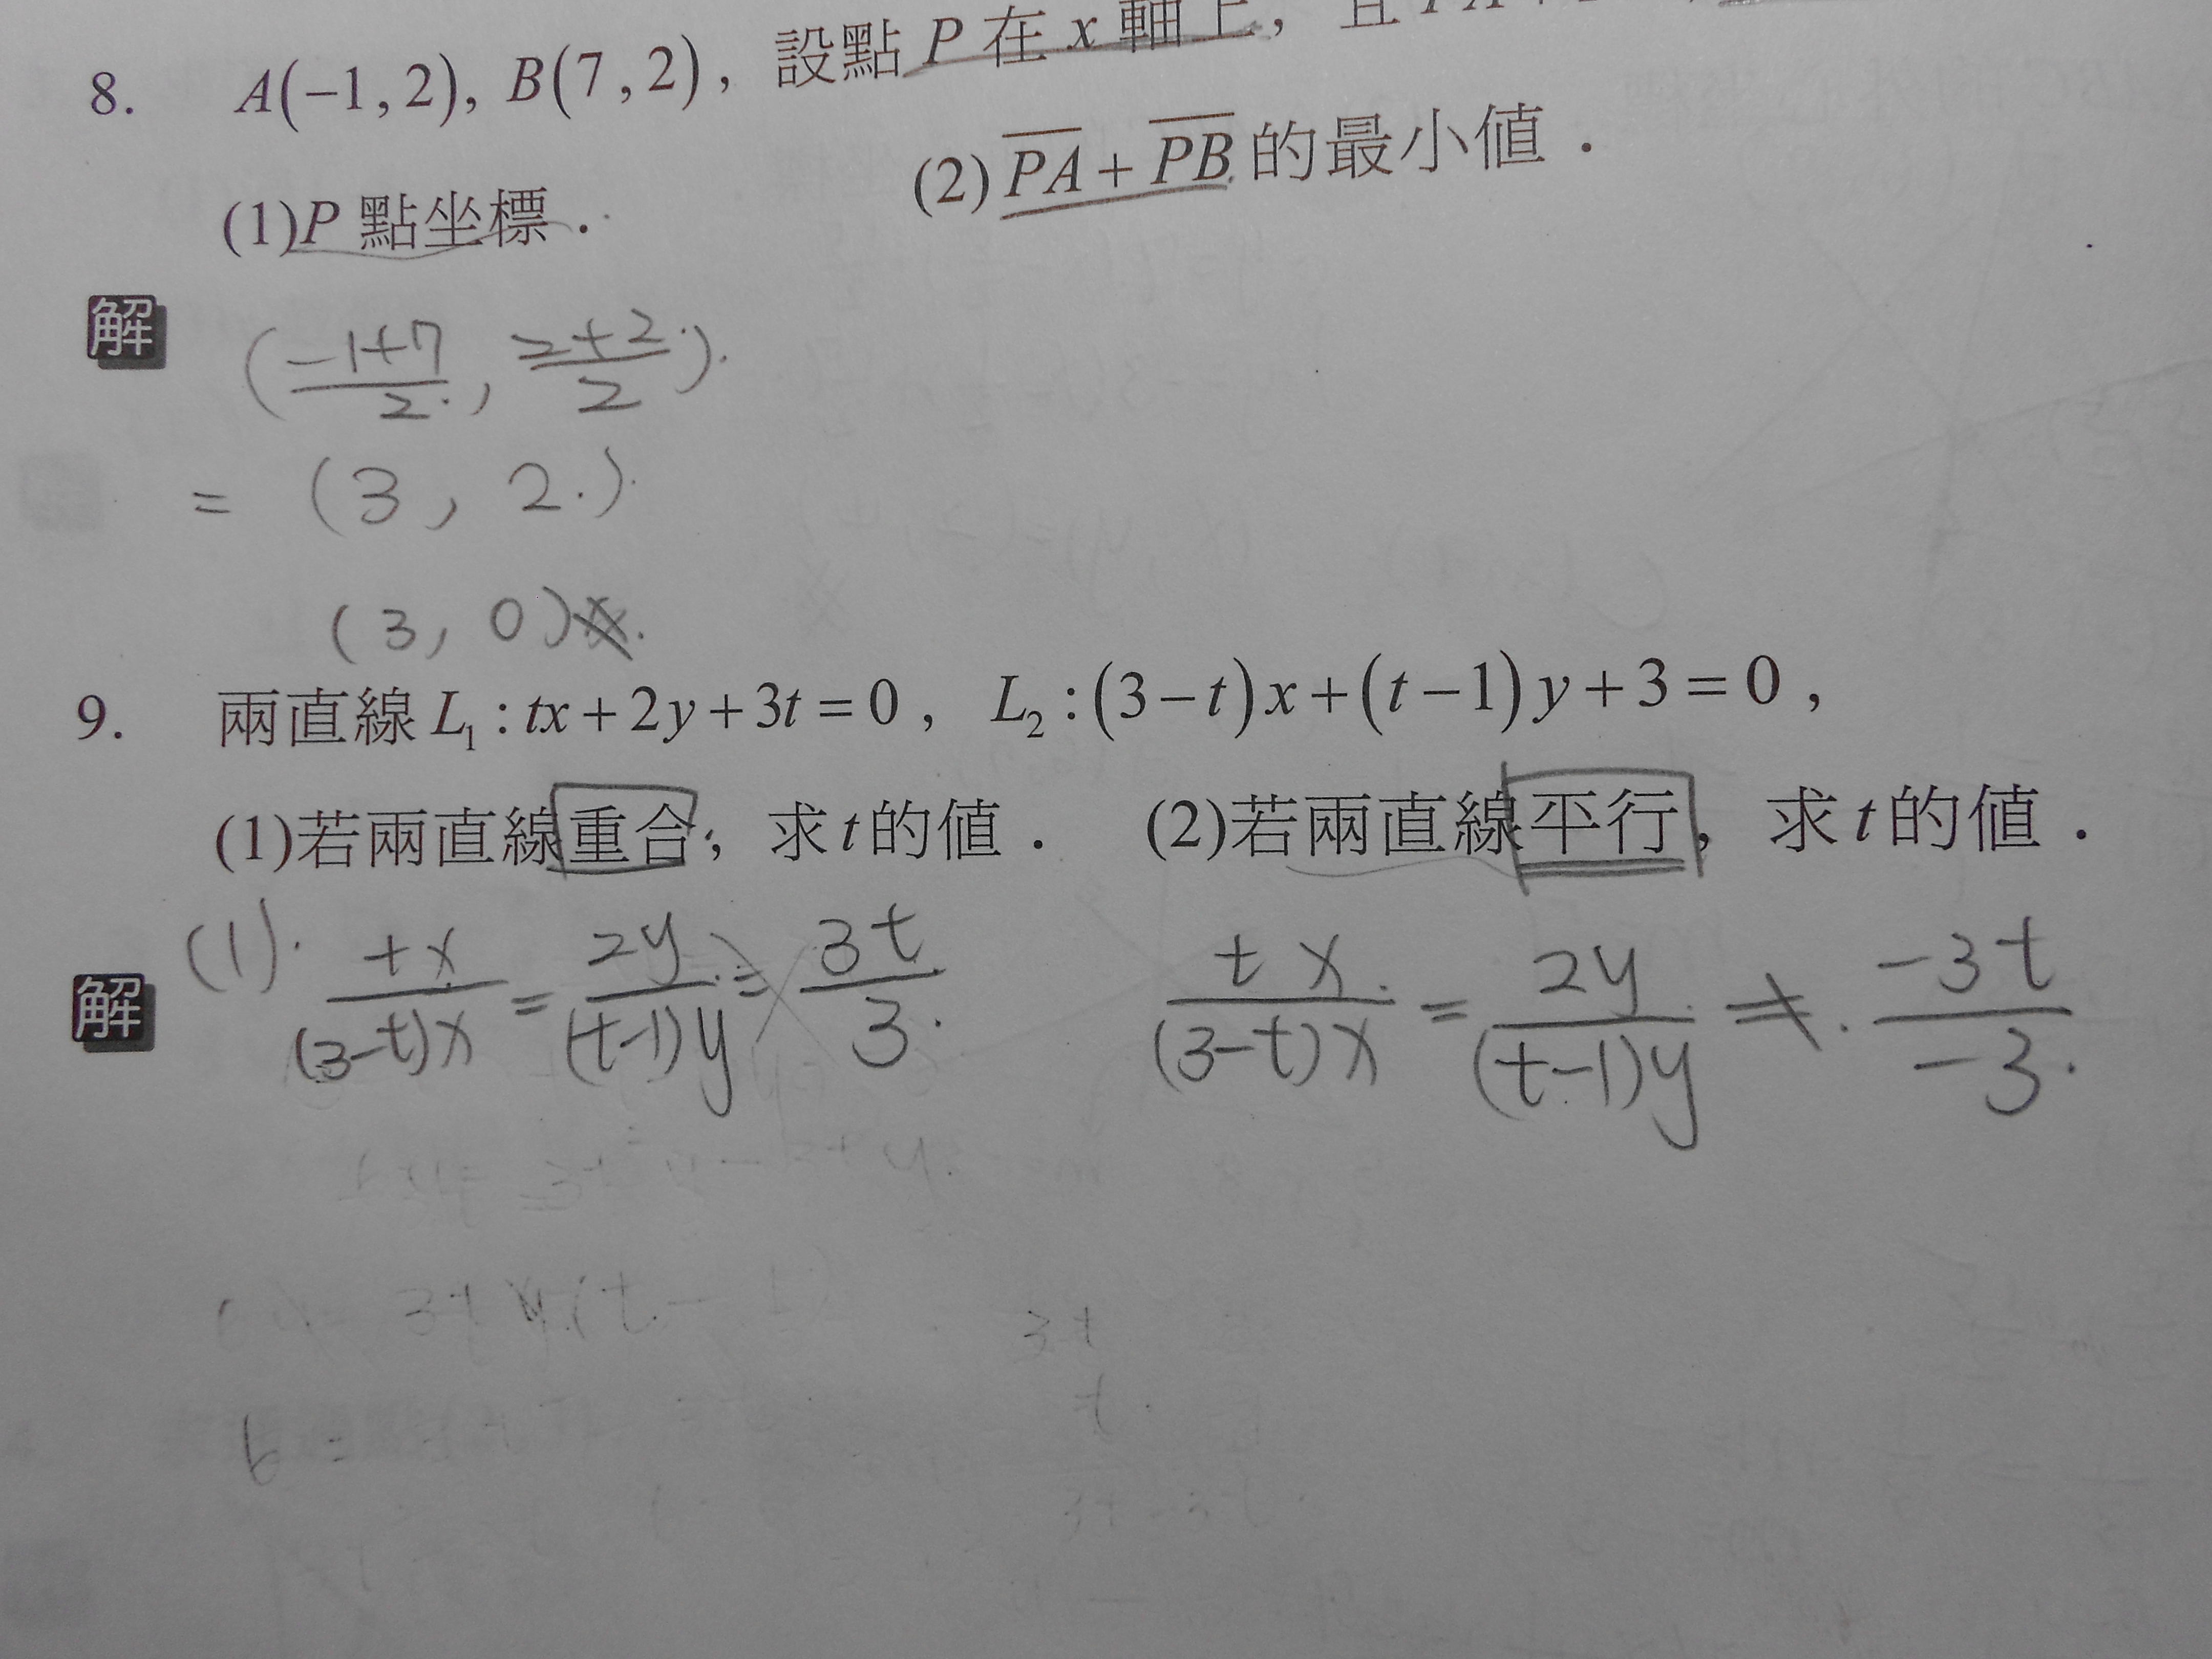 8. A(-1,2), B(7,2), 設點 P 在 x 軸上, 且
(1)P 點坐標. (2)PA+PB 的最小值.
解 (-1+7/2, 2+2/2)
= (3, 2)
(3, 0)
9. 兩直線 L₁:tx+2y+3t=0, L₂:(3-t)x+(t-1)y+3=0,
(1)若兩直線重合, 求t的值. (2)若兩直線平行, 求t的值.
解 (1). tx/(3-t)x = 2y/(t-1)y = 3t/3 tx/(3-t)x = 2y/(t-1)y ≠ -3t/-3